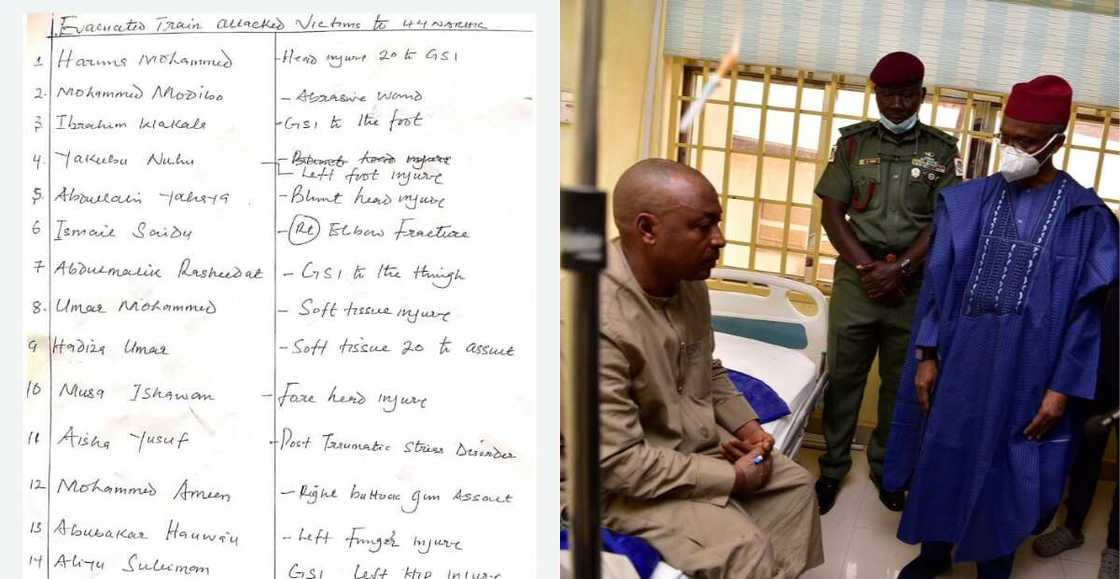 1. Evacuated Train attacked Victims to 44 NARHK
1 Haruna Mohammed - Head injure 20 to GSI
2. Mohammed Modibo - Abrasive wond
3 Ibrahim Wakala - GSI to the foot
4. Yakubu Nuhu - Blunt head injure
Left foot injure
5. Abdullahi Yahaya - Blunt head injure
6 Ismail Saidu - (Rt) Elbow Fracture
7 Abdulmalik Rasheedat - GSI to the thigh
8. Umar Mohammed - Soft tissue injure
9 Hadiza Umar - Soft tissue 20 to assult
10 Musa Ishawan - Fore head injure
11 Aisha Yusuf - Post Traumatic Stress Disorder
12 Mohammed Ameen - Right buttock gun Assault
13 Abubakar Hauwa'u - Left Finger injure
14 Aliyu Suleiman GSI Left Hip injure